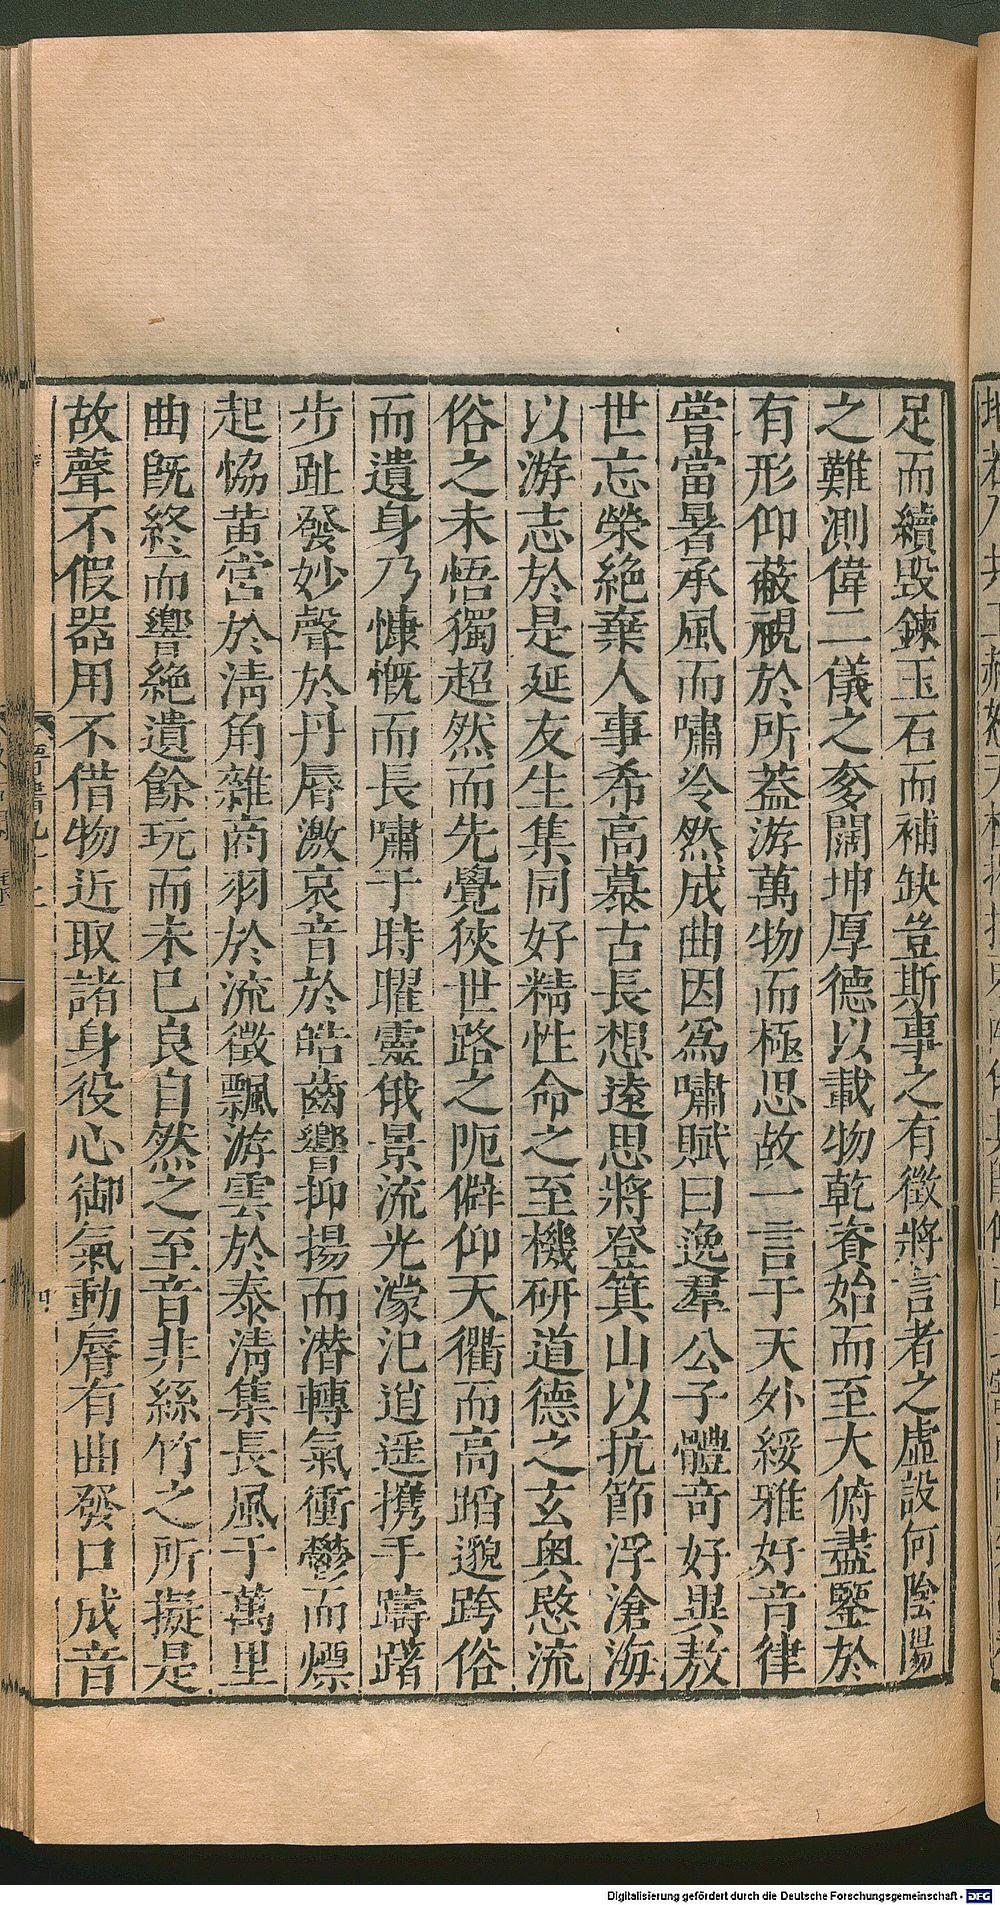 足而續毀鍊玉石而補缺豈斯事之有徵將言者之虛設何陰陽
之難測偉二儀之奓闊坤厚德以載物乾資始而至大俯盡鑒於
有形仰蔽視於所蓋游萬物而極思故一言于天外綏雅好音律
嘗當暑承風而嘯冷然成曲因爲嘯賦曰逸羣公子體奇好異敖
世忘榮絶棄人事希高慕古長想遠思將登箕山以抗節浮滄海
以游志於是延友生集同好精性命之至機研道德之玄奥愍流
俗之未悟獨超然而先覺狹世路之阨僻仰天衢而高蹈邈跨俗
而遺身乃慷慨而長嘯于時曜靈俄景流光濛汜逍遥攜手躊躇
步趾發妙聲於丹脣激哀音於皓齒響抑揚而潜轉氣衝鬱而熛
起恊黄宫於淸角雜商羽於流徵飄游雲於泰淸集長風于萬里
曲旣終而響絶遺餘玩而未已良自然之至音非絲竹之所擬是
故聲不假器用不借物近取諸身役心御氣動脣有曲發口成音
Digitalisierung gefördert durch die Deutsche Forschungsgemeinschaft - DFG